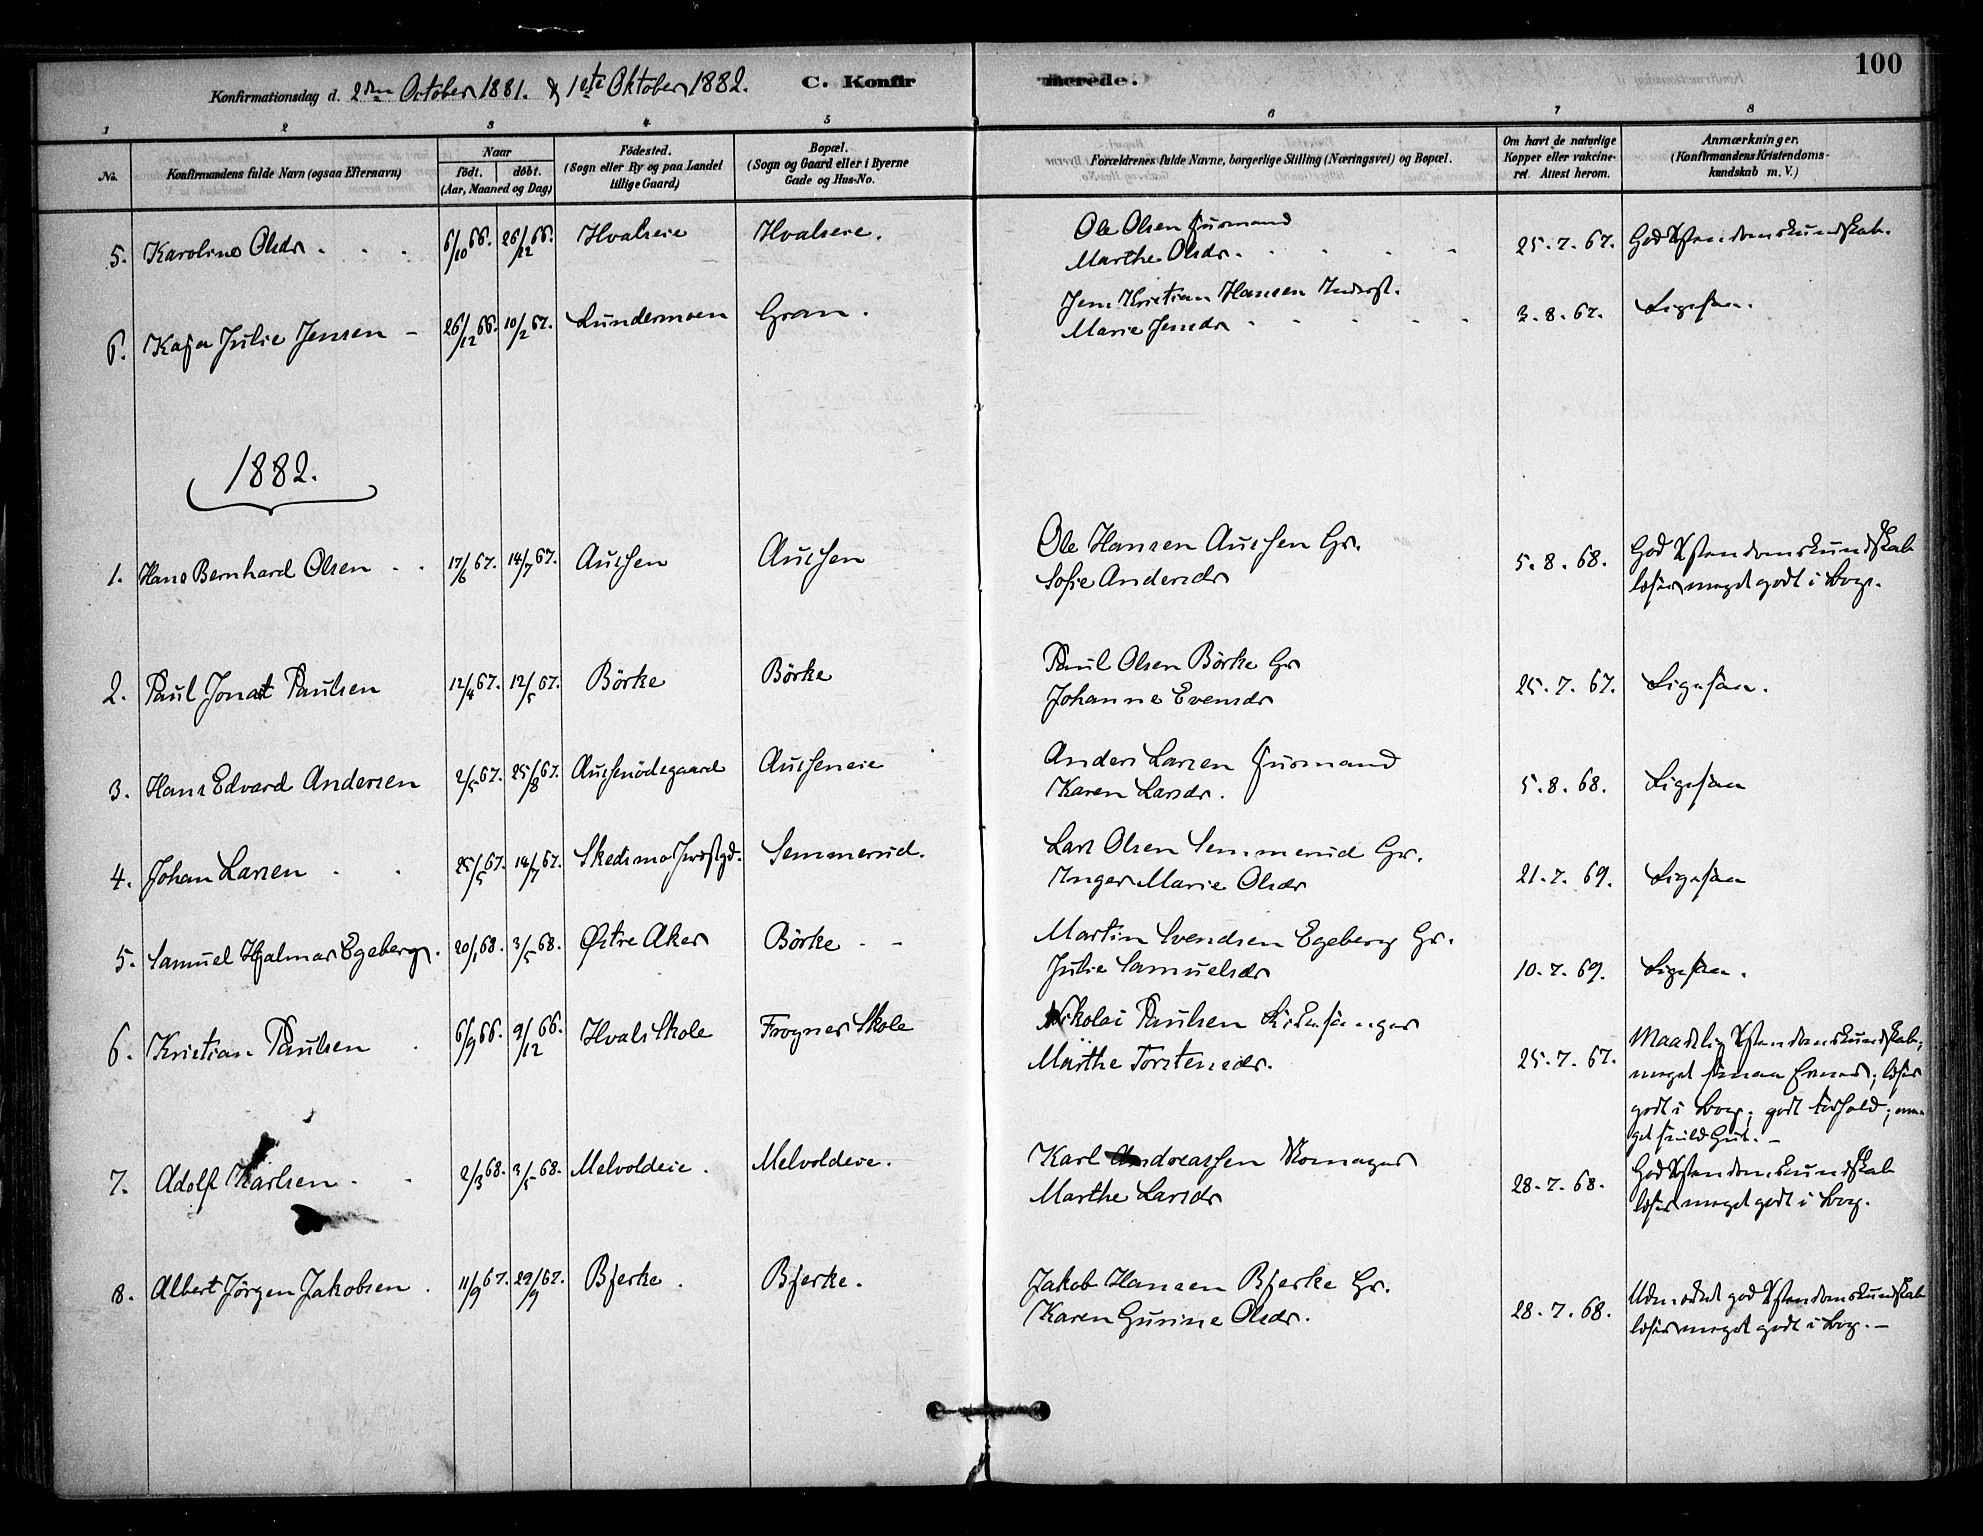 100
Konfirmationsdag d. 2den October 1881. & 1ste Oktober 1882. C. Konfirmerede.
1 2 3 4 5 6 7 8
No. Konfirmandens fulde Navn (ogsaa Efternavn) Naar födt. döbt. (Aar, Maaned og Dag) Födested. (Sogn eller By og paa Landet tillige Gaard) Bopæl. (Sogn og Gaard eller i Byerne Gade og Hus-No. Forældrenes fulde Navne, borgerlige Stilling (Næringsvei) og Bopæl. Om havt de naturlige Kopper eller vakcineret. Attest herom. Anmærkninger. (Konfirmandens Kristendomskundskab m. V.)
5. Karoline Olsdr. 6/10 66. 26/12 66. Hvalseie Hvalseie. Ole Olsen Husmand 25. 7. 67. God Xstendomskundskab.
Marthe Olsdr.
6. Kaja Julie Jensen 26/12 66. 10/2 67. Lundermoen Gran. Jens Kristian Hansen Inderst. 3. 8. 67. Ligesaa.
Marie Jensdr
1882.
1. Hans Bernhard Olsen 17/6 67. 14/7 67. Aulsen Aulsen Ole Hansen Aulsen Gr. 5. 8. 68. God Xstendomskundskab
Sofie Andersdr læser meget godt i Bog.
2. Paul Jonat Paulsen 12/4 67. 12/5 67. Börke Börke Paul Olsen Börke Gr 25. 7. 67. Ligesaa.
Johanne Evensdr
3. Hans Edvard Andersen 2/5 67. 25/8 67. Aulsenödegaard Aulseneie Anders Larsen Husmand 5. 8. 68. Ligesaa
Karen Larsdr.
4. Johan Larsen 25/5 67. 14/7 67. Skedsmo Præstgd. Semmerud. Lars Olsen Semmerud Gr. 21. 7. 69. Ligesaa
Inger Marie Olsdr
5. Samuel Hjalmar Egeberg. 20/1 68. 3/5 68. Østre Aker Börke Martin Svendsen Egeberg Gr. 10. 7. 69. Ligesaa.
Julie Samuelsdr
6. Kristian Paulsen 6/9 66. 9/12 66. Hvals Skole Frogner Skole Nikolai Paulsen Kirkesanger 25. 7. 67. Maadelig Xstendomskundskab;
Marthe Torstensdr. meget smaa Evner; læser
godt i Bog; godt Forhold; meget snild Gut.
7. Adolf Karlsen 2/3 68. 3/5 68. Melvoldeie. Melvoldeie. Karl Andreassen Skomager 28. 7. 68. God Xstendomskundskab
Marthe Larsdr læser meget godt i Bog.
8. Albert Jörgen Jakobsen. 11/9 67. 29/9 67. Bjerke. Bjerke. Jakob Hansen Bjerke Gr. 28. 7. 68. Udmerket god Xstendomskundskab
Karen Gurine Olsdr. læser meget godt i Bog.